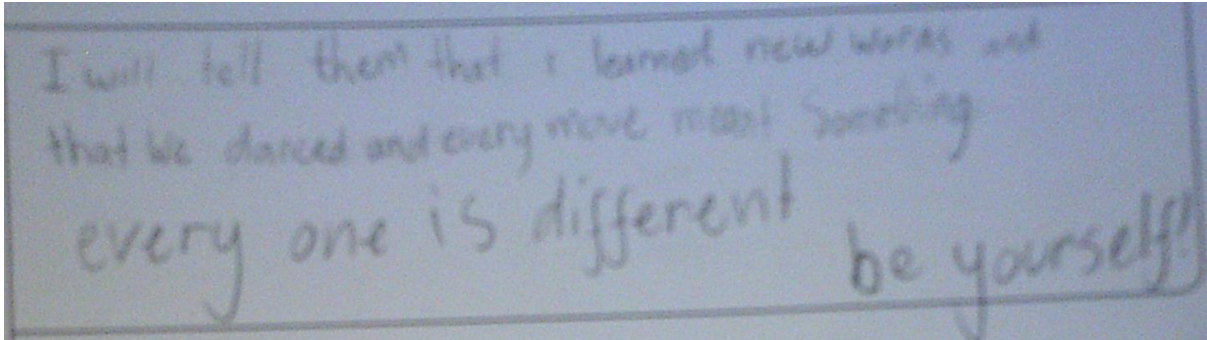 I will tell them that i learned new words and
that we danced and every move meant Something
every one is different
be yourself!